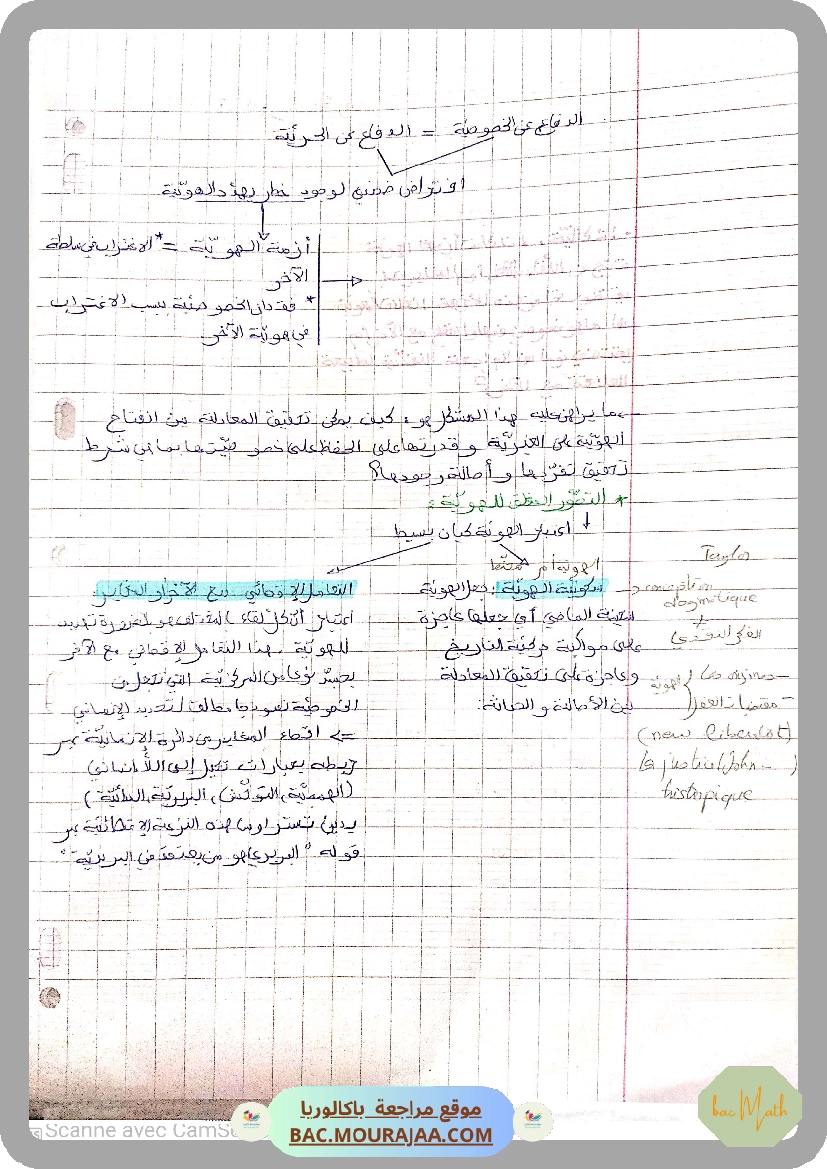 الدفاع عن الخصوصيّة = الدفاع عن الحريّة
افتراض ضمني لوجود خطر يهدّد الهويّة
أزمة الهويّة = * الاغتراب في سلطة
الآخر
* فقدان الخصوصيّة بسبب الاغتراب
في هويّة الآخر
ما يراهن عليه هذا المشكل هو: كيف يمكن تحقيق المعادلة بين انفتاح
الهويّة على الغيريّة و قدرتها على الحفظ على خصوصيّتها بما هي شرط
تحقيق تفرّدها و أصالة وجودها؟
* التصوّر المغلق للهويّة:
اعتبار الهويّة كيان بسيط
الهويّة أمر
سكونيّة الهويّة: جعل الهويّة
سجينة الماضي أي جعلها عاجزة
على مواكبة حركيّة التاريخ
وعاجزة على تحقيق المعادلة
بين الأصالة و الحداثة.
التعامل الإقصائي مع الآخر المغاير:
اعتبار أنّ كلّ لقاء بالمختلف هو ضرورة تهديد
للهويّة. هذا التعامل الإقصائي مع الآخر
يجسّد نوعا من المركزيّة التي تجعل من
الخصوصيّة نموذجا مطلقا لتحديد الإنساني
=> اقصاء المغاير من دائرة الإنسانيّة عبر
ربطه بعبارات تحيل إلى اللاّإنساني
(الهمجيّة، التوحّش، البربريّة، البدائيّة)
يدين شتراوس هذه النزعة الإقصائيّة عبر
قوله "البربري هو من يعتقد في البربريّة"
Taylor
conception
dogmatique
الفكر النقدي
les origines
الهويّة
مقتضيات العصر
John
Scanne avec CamS
موقع مراجعة باكالوريا
BAC.MOURAJAA.COM
bac Math